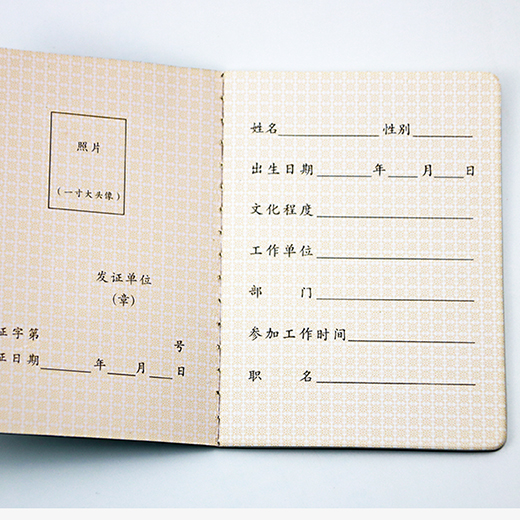 照片
(一寸大头像)
发证单位
(章)
证字第 号
证日期 年 月 日
姓名 性别
出生日期 年 月 日
文化程度
工作单位
部 门
参加工作时间
职 名